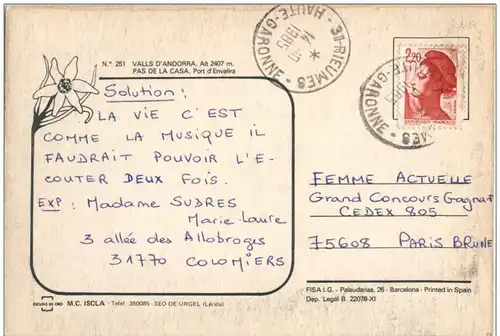 N.° 251 VALLS D'ANDORRA. Alt 2407 m.
PAS DE LA CASA. Port d'Envalira
31-RIEUMES-
HAUTE-GARONNE
14
1985
2,20
REPUBLIQUE FRANÇAISE
Solution:
LA VIE C'EST
COMME LA MUSIQUE IL
FAUDRAIT POUVOIR L'E-
COUTER DEUX FOIS.
EXP: Madame SUDRES
Marie-Laure
3 allée des Allobroges
31770 COLOMIERS
FEMME ACTUELLE
Grand Concours Gagnant
CEDEX 805
75608 PARIS BRUNE
ESCUDO DE ORO
M.C. ISCLA - Telèf 350085 - SEO DE URGEL (Lérida)
FISA I.G. - Palaudarias, 26 - Barcelona - Printed in Spain
Dep. Legal B. 22078-XI